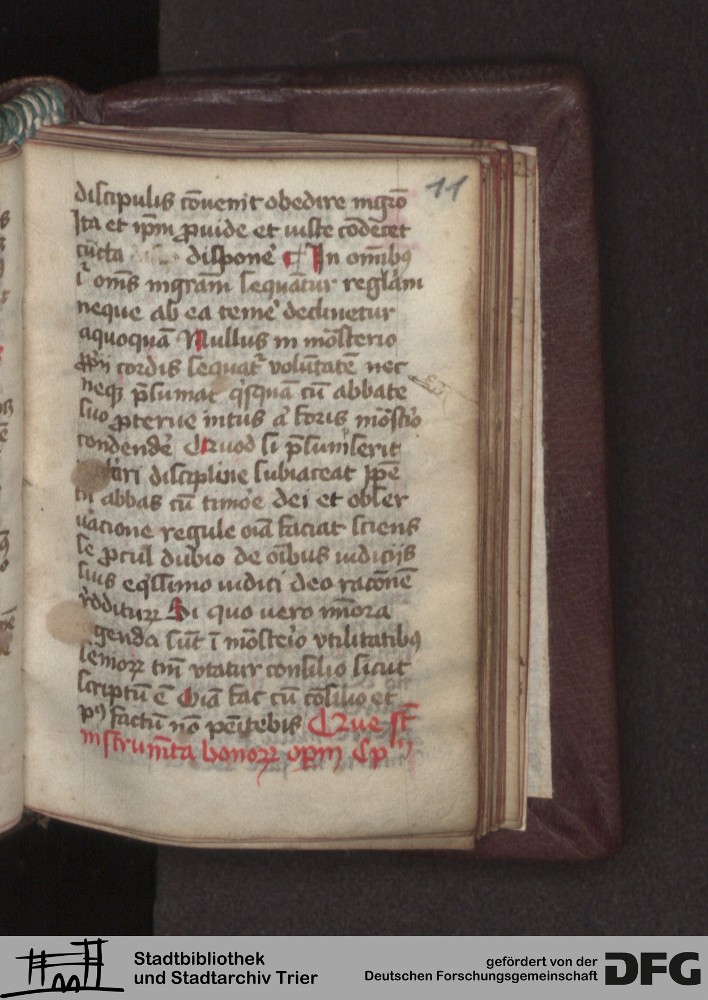 11
discipulis cōuenit obedire mgrō
Ita et ipm̄ ꝓuide et iuste cōdecet
cūcta dispone᷒ In omībꝯ
ī om̄s mgram̄ sequātur reglam
neque ab ea teme᷒ declinetur
aquoquā Nullus in mōsterio
ꝓpʳⁱ cordis sequatʳ volūtatē nec
neqꝫ p̄sumat qⁱsquā cū abbate
suo ꝓterue intus aᵗ foris mōstⁱo
condende᷒ Quod si p̄sumserit
discipline subiaceat Ipē
tn̄ abbas cū timoe᷒ dei et obser
uacione regule oīa faciat sciens
se ꝓcul dubio de oībus iudicijs
suis eqⁱssimo iudici deo racōnē
rodditurꝝ Si quo uero mīora
genda sūt ī mōsteio vtilitatibꝯ
semorꝝ tm̄ vtatur consilio sicut
scriptū ē Oīa fac cū cōsilio et
pꝯ factū nō peītebis Que st̄
instrum̄ta bonorꝝ opm̄ Cpᵐ
Stadtbibliothek
und Stadtarchiv Trier
gefördert von der
Deutschen Forschungsgemeinschaft
DFG